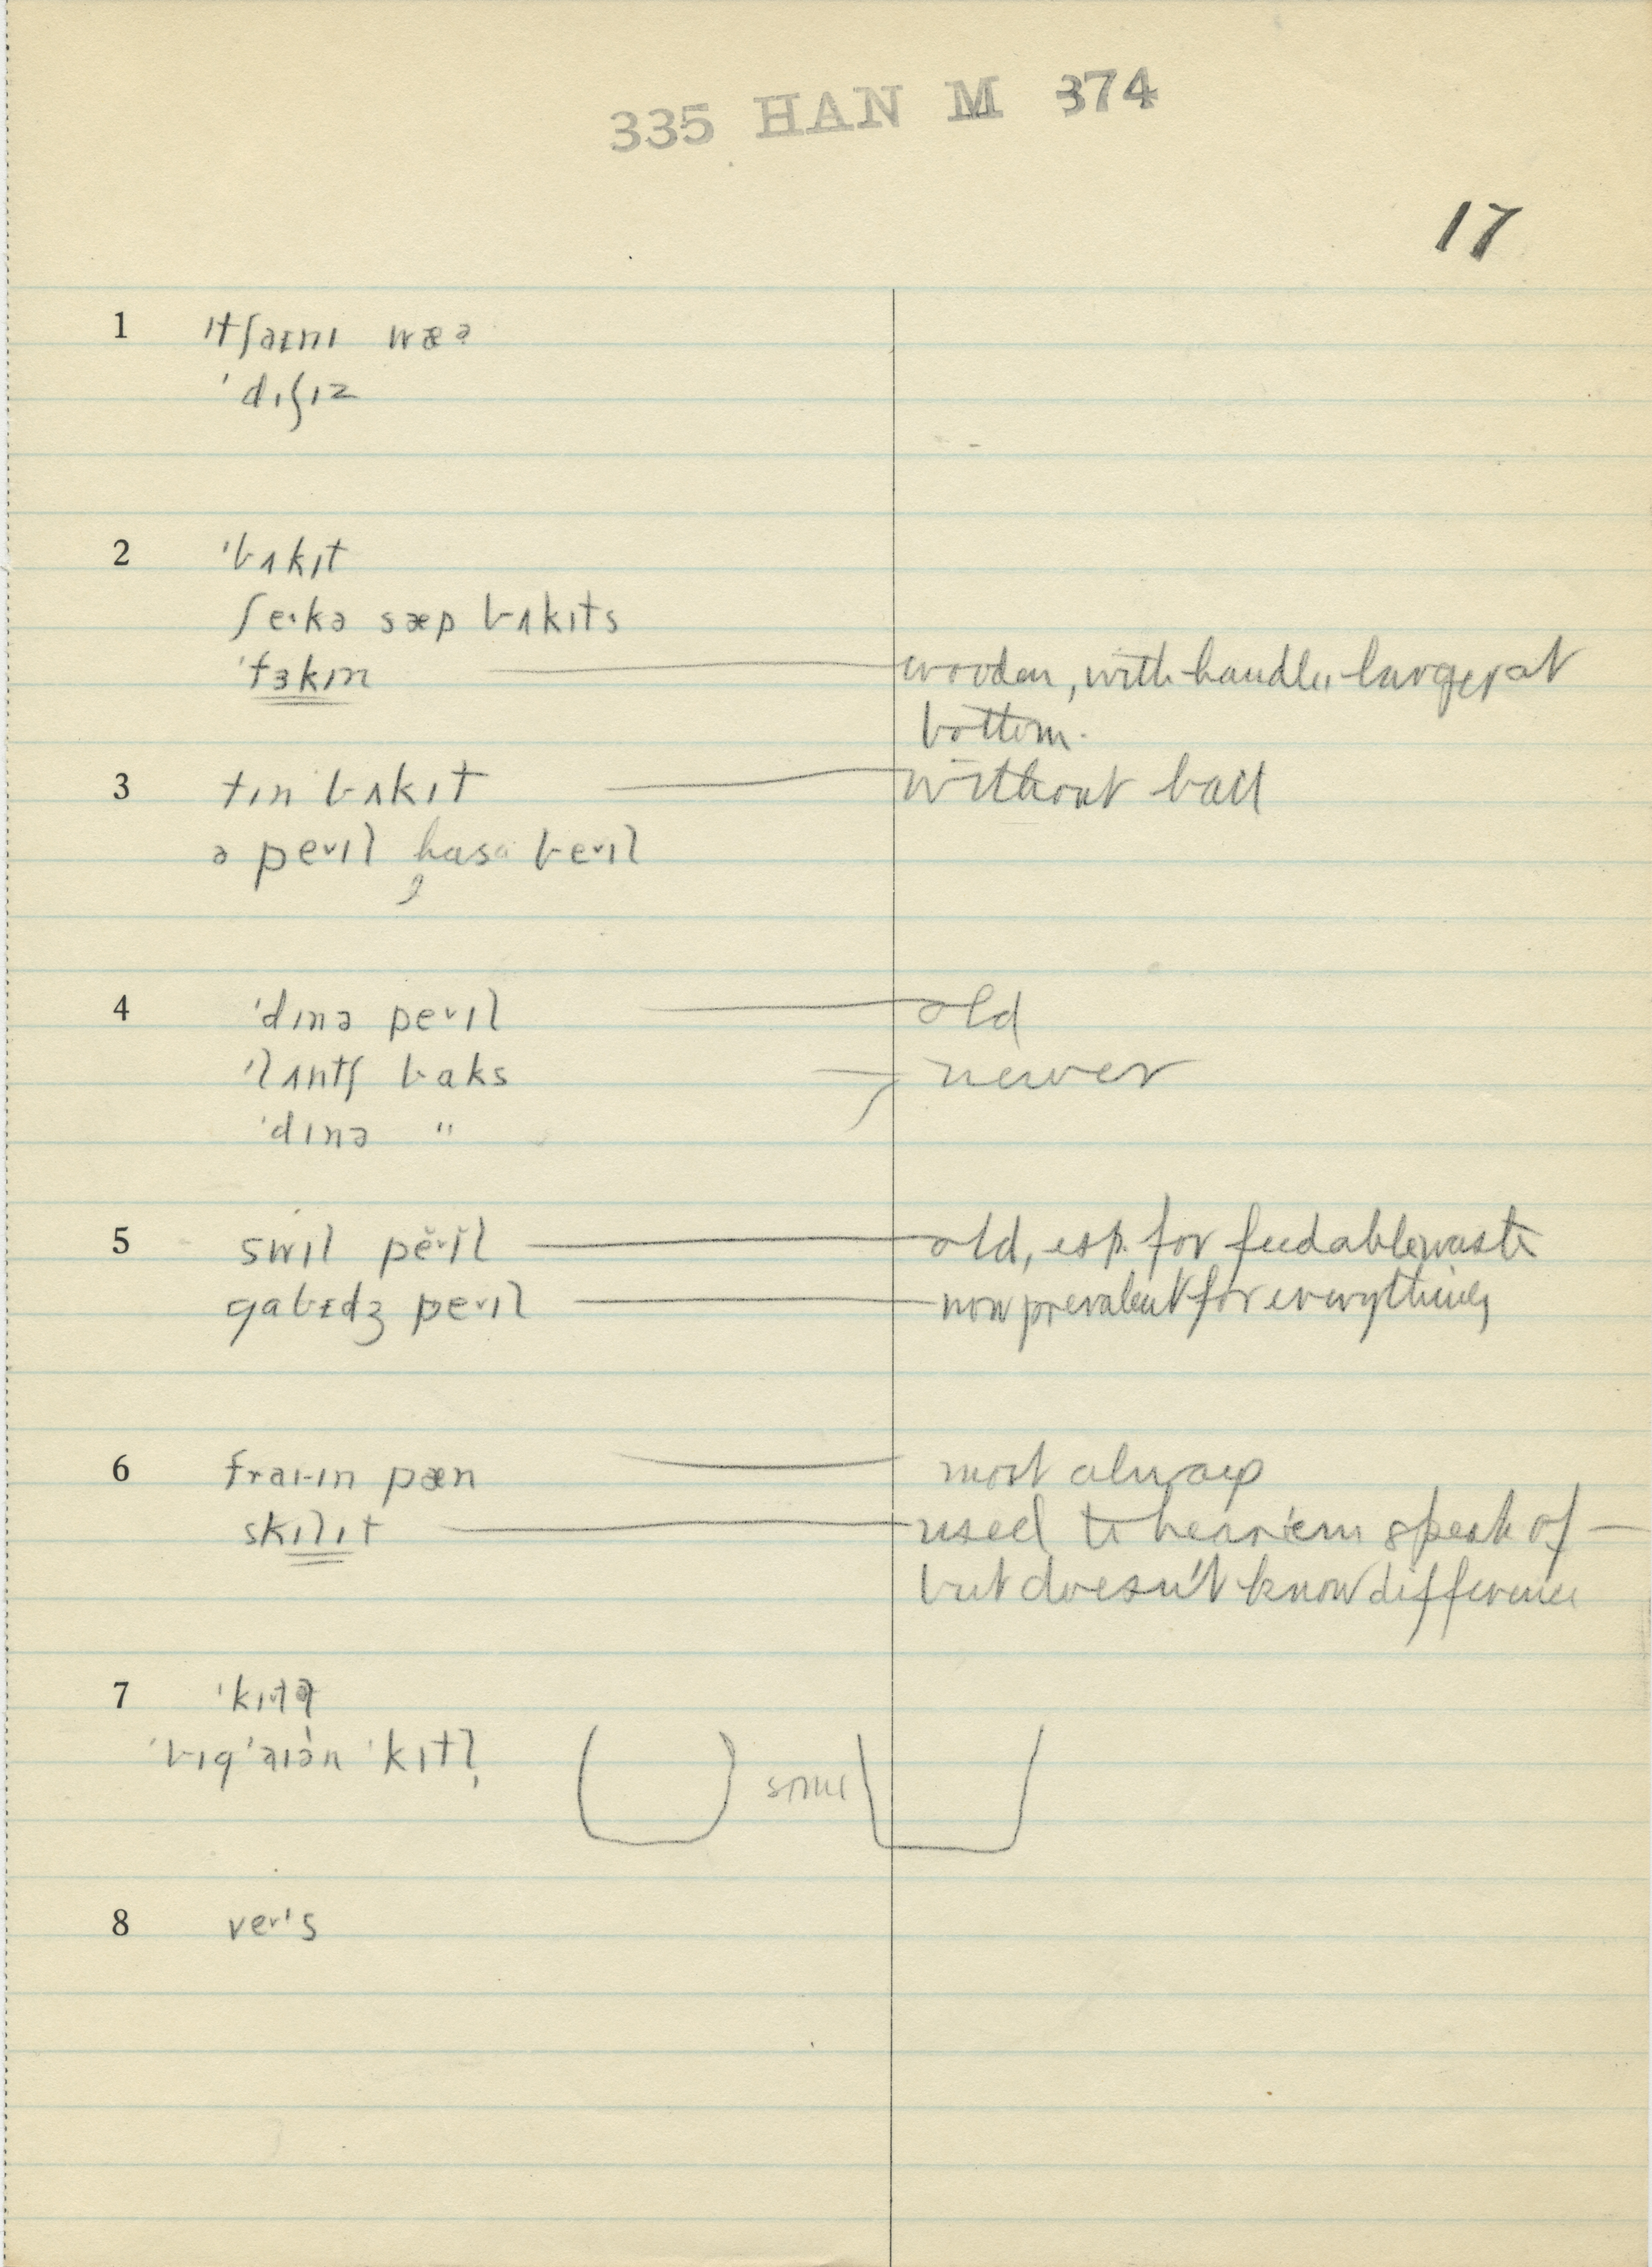 335 HAN M 374
17
1 ɪtʃaɪnɪ wæə
ˈdɪʃɪz
2 ˈbʌkɪt
ʃeˑkə sæp bʌkɪts
ˈfɜkɪn wooden, with handle larger at
bottom.
3 tɪn bʌkɪt without bail
ə peˑɪl, has a beˑɪl
4 ˈdɪnə peˑɪl old
ˈlʌntʃ baks newer
ˈdɪnə "
5 swɪl pĕˑɪ̆l old, esp. for feedable waste
gabɪdʒ peˑɪl now prevalent for everything
6 fraɪ-ɪn pæn most always
skɪlɪt used to hear 'em speak of —
but doesn't know difference
7 ˈkɪtl̩
ˈbɪg ˈaɪən ˈkɪtl̩ some
8 veˑɪs